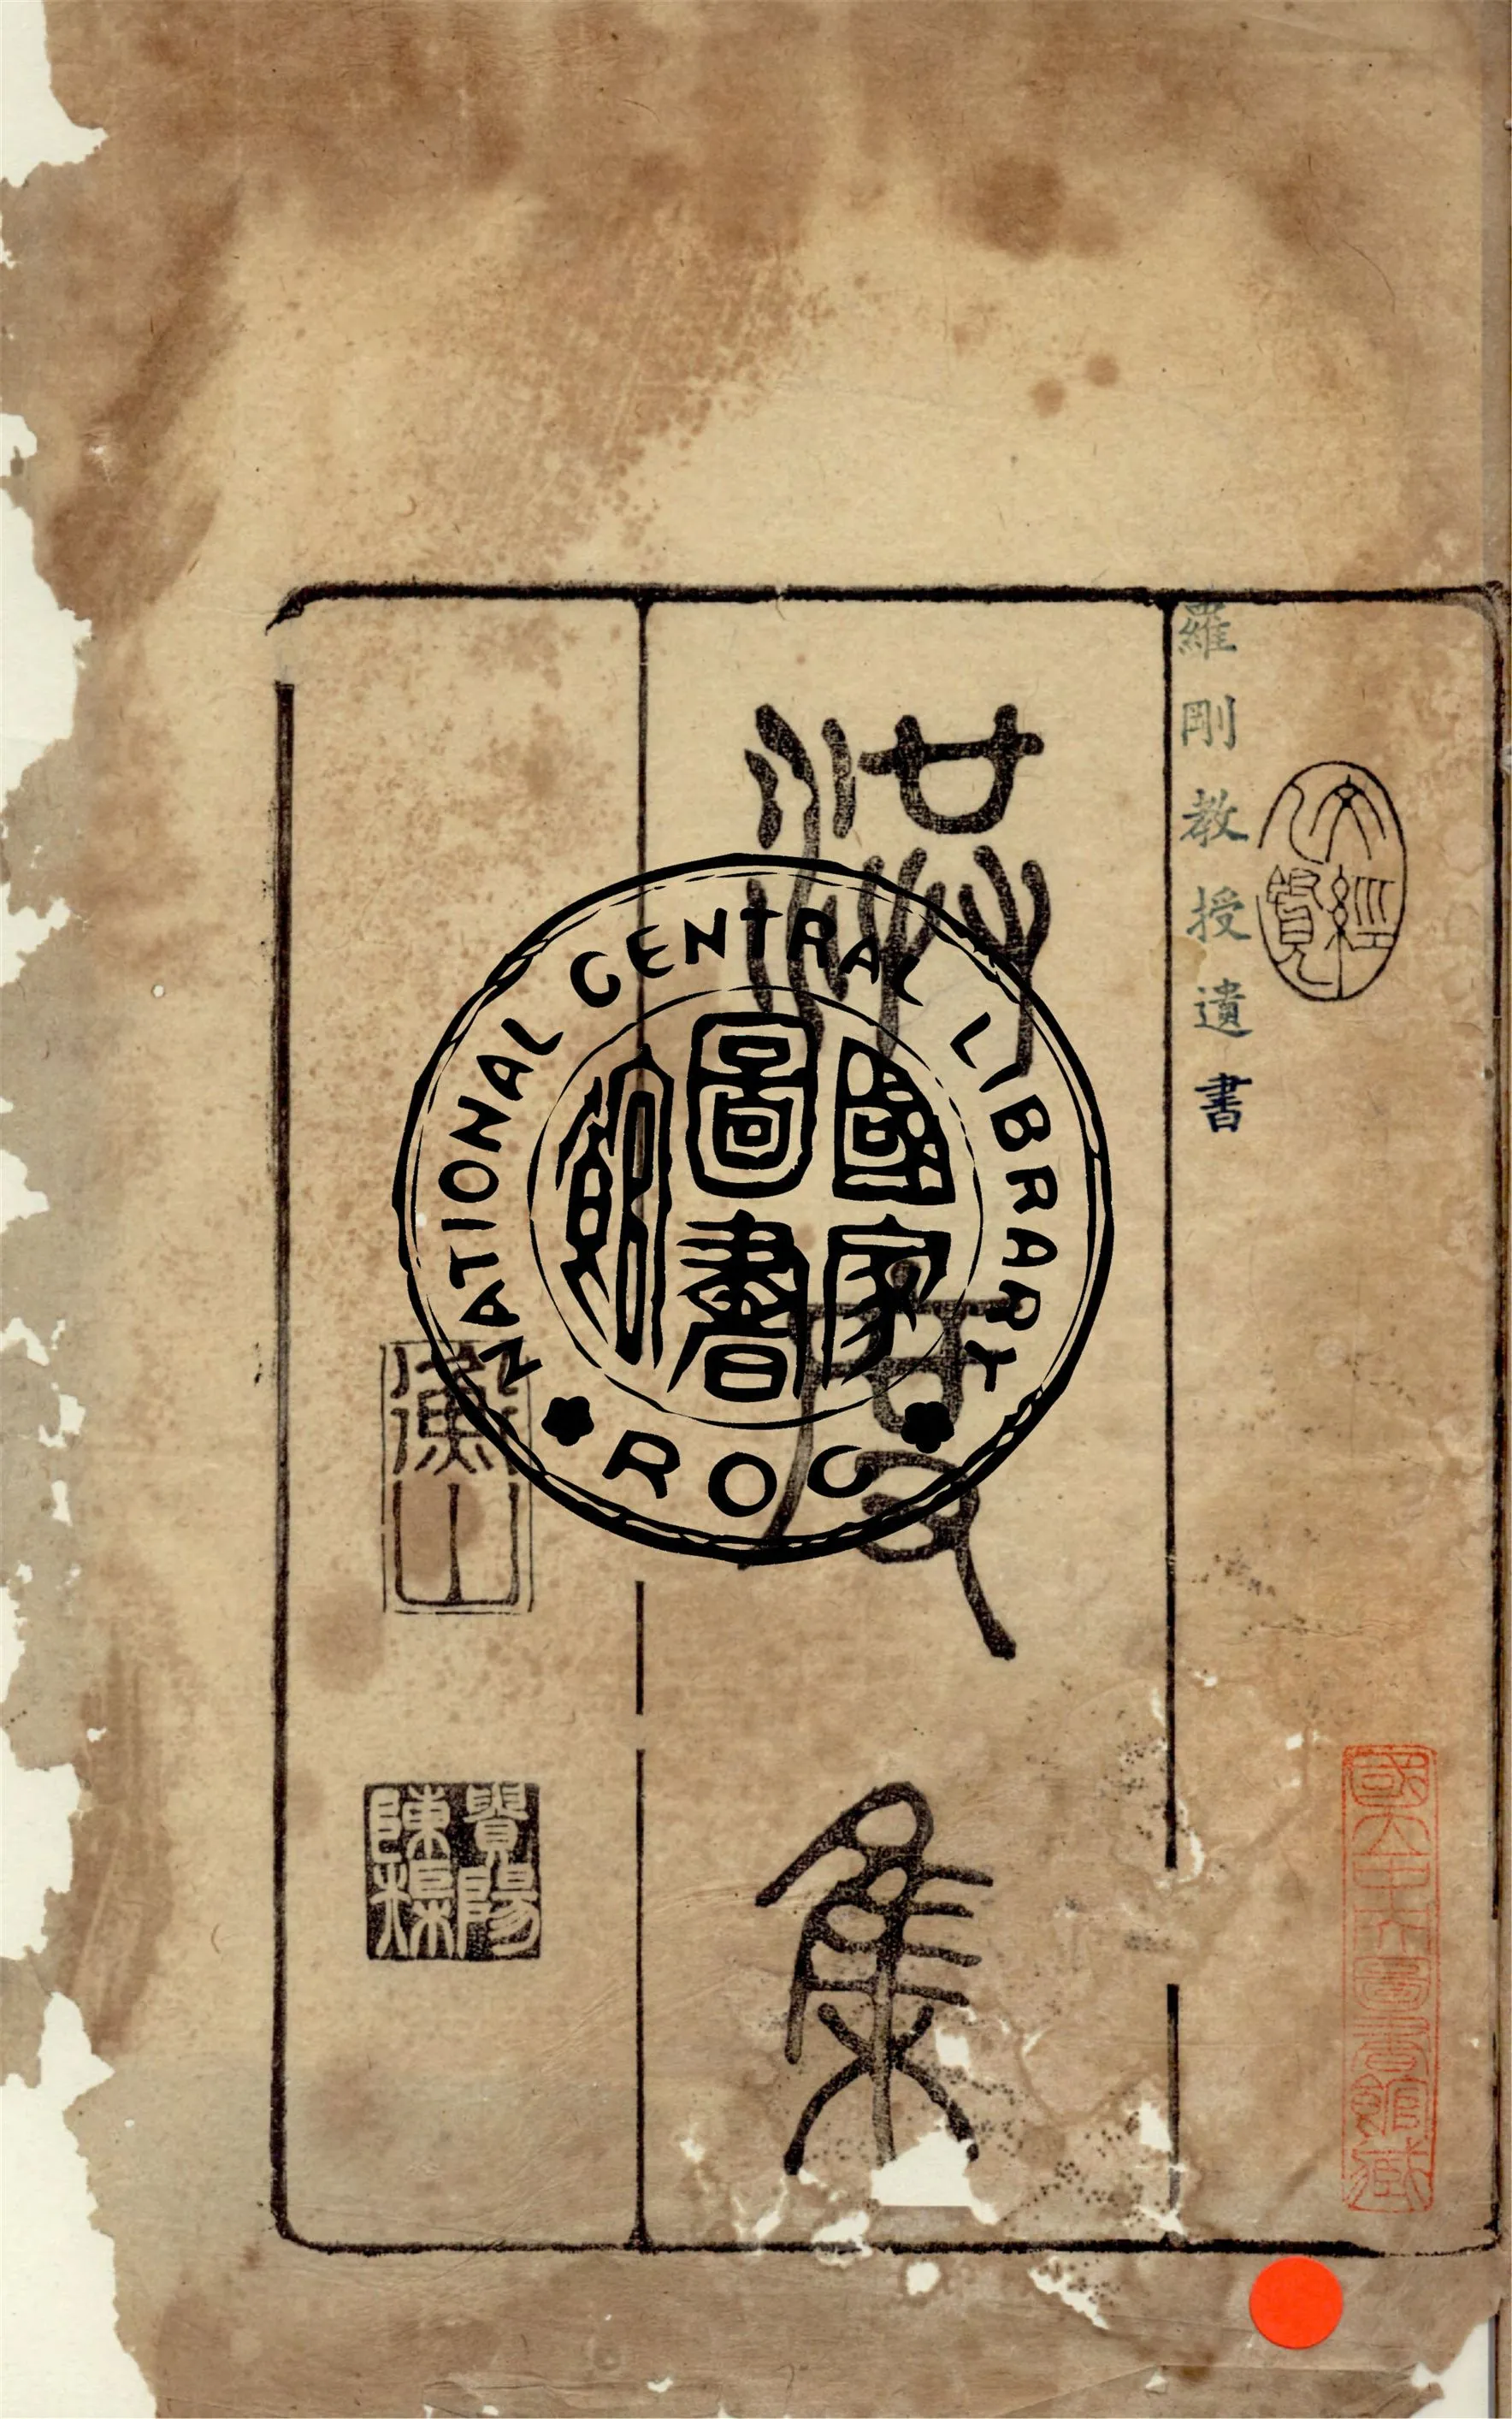 國立中央圖書館藏
羅剛教授遺書
洪度集
衡山
貴陽陳榘
NATIONAL CENTRAL LIBRARY
國家圖書館
ROC